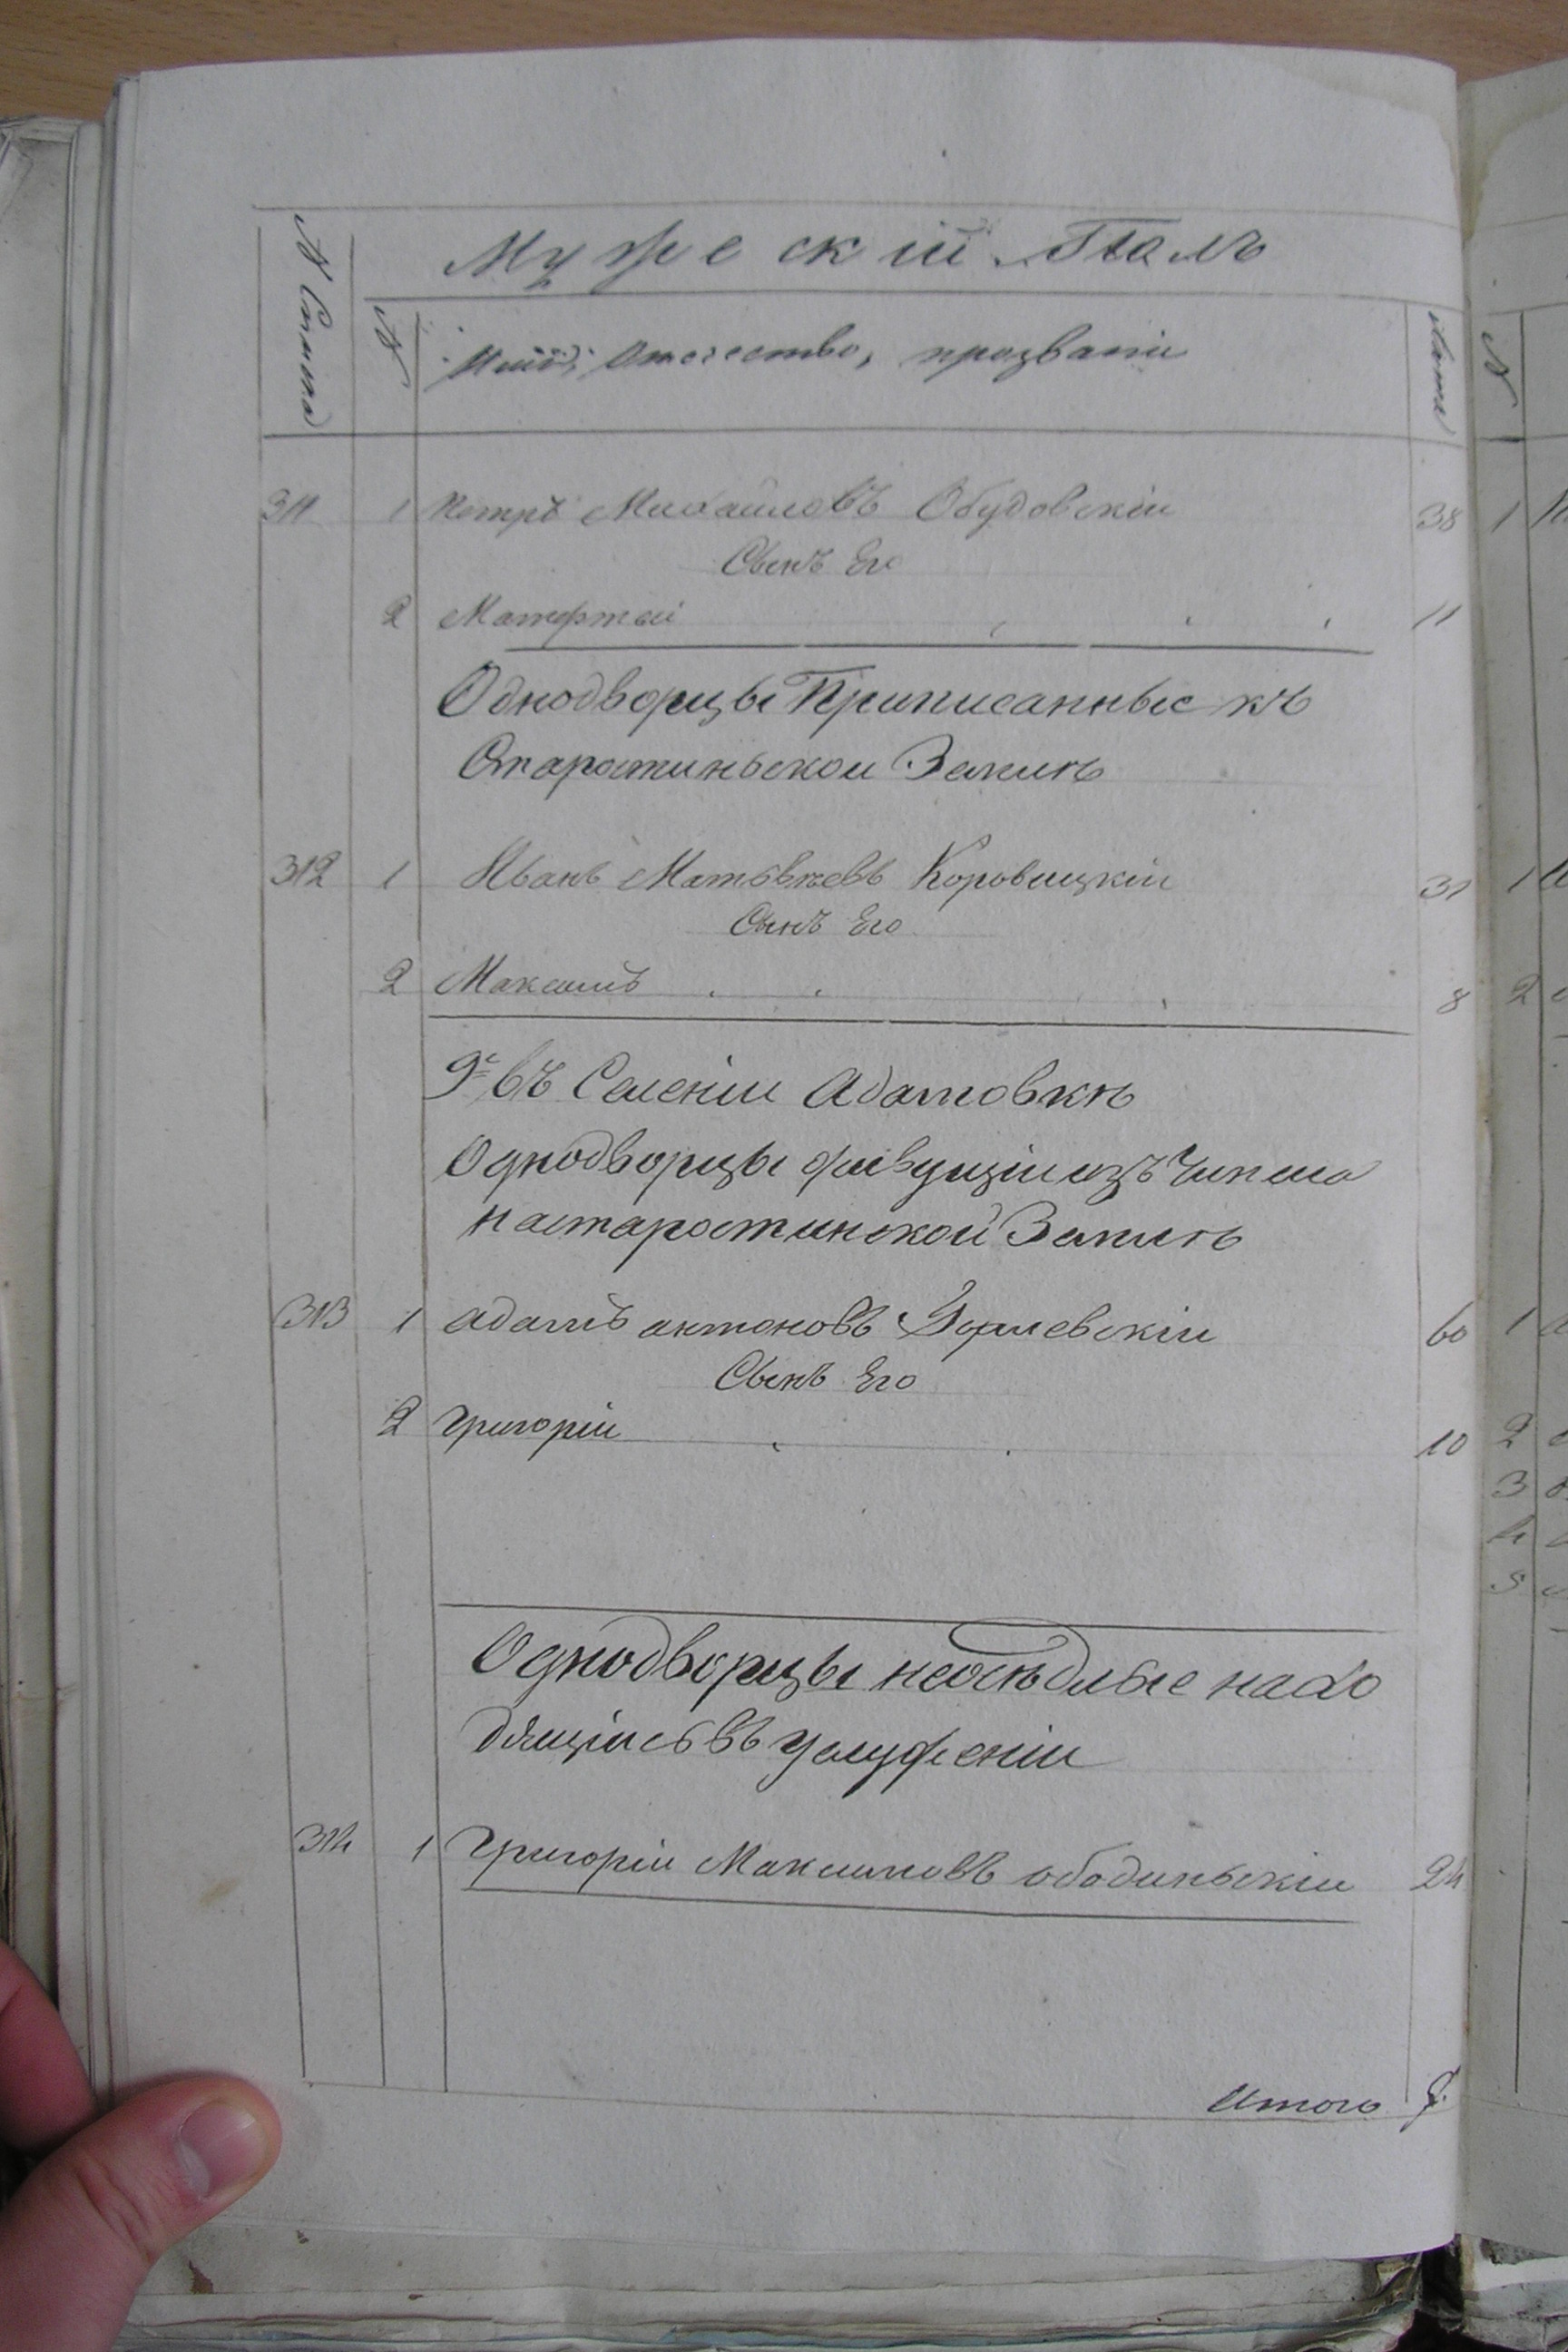 Мужескій Полъ
№ Семьи
№
Имя, Отечество, прозваніи
Лета
№
311 1 Петръ Михайловъ Обудовскій 38 1
Сынъ Его
2 Матфтей 11
Однодворцы Приписанные къ
Старостиньской Землѣ
312 1 Иванъ Матвѣевъ Коровицкій 31 1
Сынъ Его
2 Максимъ 8 2
9е въ Селеніи Адамовкѣ
Однодворцы живущіи изъ Чинша
на старостинской Землѣ
313 1 адамъ антоновъ 60 1
Сынъ Его
2 Григорій 10 2
3
4
5
Однодворцы неосѣдлые нахо
дящіись въ услуженіи
314 1 Григорій Максимовъ ободиньскій 24
Итого 7.